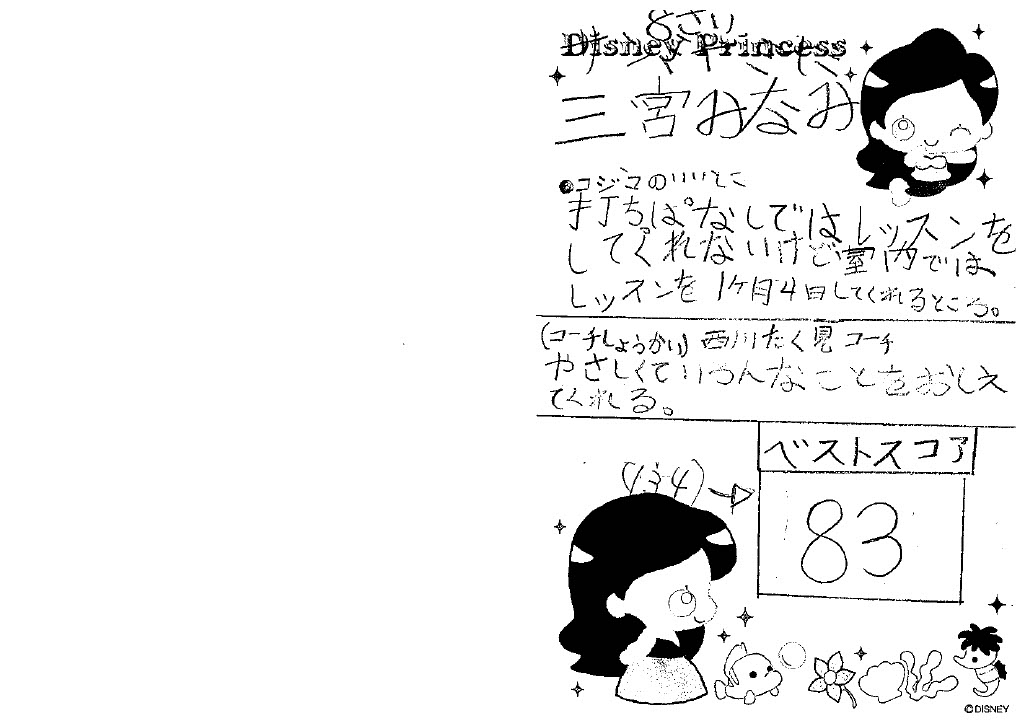 8さい
Disney Princess
三宮みなみ
●コジコのいいとこ
手打ちぱなしではレッスンを
してくれないけど室内では
レッスンを1ヶ月4日してくれるところ。
(コーチしょうかい) 西川たく見コーチ
やさしくていろんなことをおしえ
てくれる。
ベストスコア
83
©DISNEY